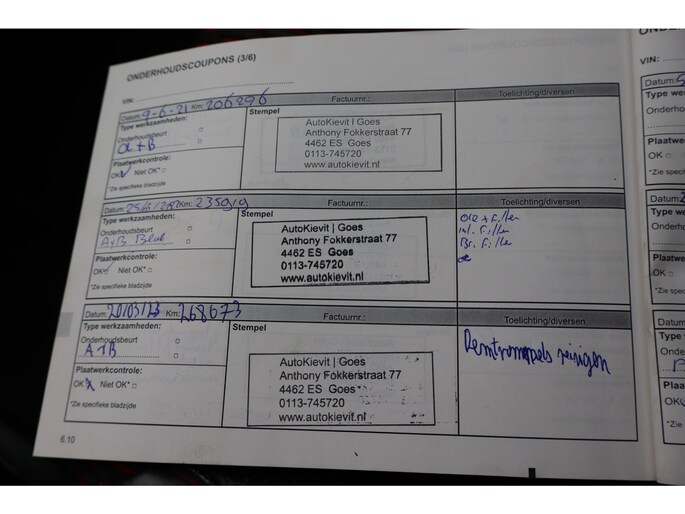 ONDERHOUDSCOUPONS (3/6)
VIN:
Datum: 9-6-21 Km: 206296
Factuurnr.:
Toelichting/diversen
Type werkzaamheden:
Stempel
Onderhoudsbeurt
A+B
Plaatwerkcontrole:
OK Niet OK*
*Zie specifieke bladzijde
AutoKievit | Goes
Anthony Fokkerstraat 77
4462 ES Goes
0113-745720
www.autokievit.nl
Km: 235919
Factuurnr.:
Toelichting/diversen
Type werkzaamheden:
Stempel
Onderhoudsbeurt
A+B
Plaatwerkcontrole:
OK Niet OK*
*Zie specifieke bladzijde
AutoKievit | Goes
Anthony Fokkerstraat 77
4462 ES Goes
0113-745720
www.autokievit.nl
Datum: 20/03/23 Km: 268673
Factuurnr.:
Toelichting/diversen
Type werkzaamheden:
Stempel
Onderhoudsbeurt
A+B
Plaatwerkcontrole:
OK Niet OK*
*Zie specifieke bladzijde
AutoKievit | Goes
Anthony Fokkerstraat 77
4462 ES Goes
0113-745720
www.autokievit.nl
Remtrommels reinigen
6.10
VIN:
Datum:
Type werk
Onderhoud
Plaatwerk
OK
*Zie speci